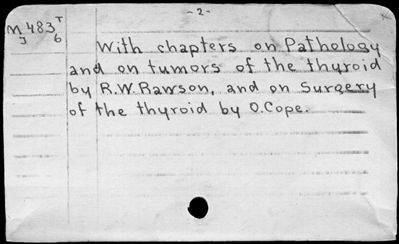 -2-
M483T
J 6
With chapters on Pathology
and on tumors of the thyroid
by R.W. Rawson, and on Surgery
of the thyroid by O. Cope.